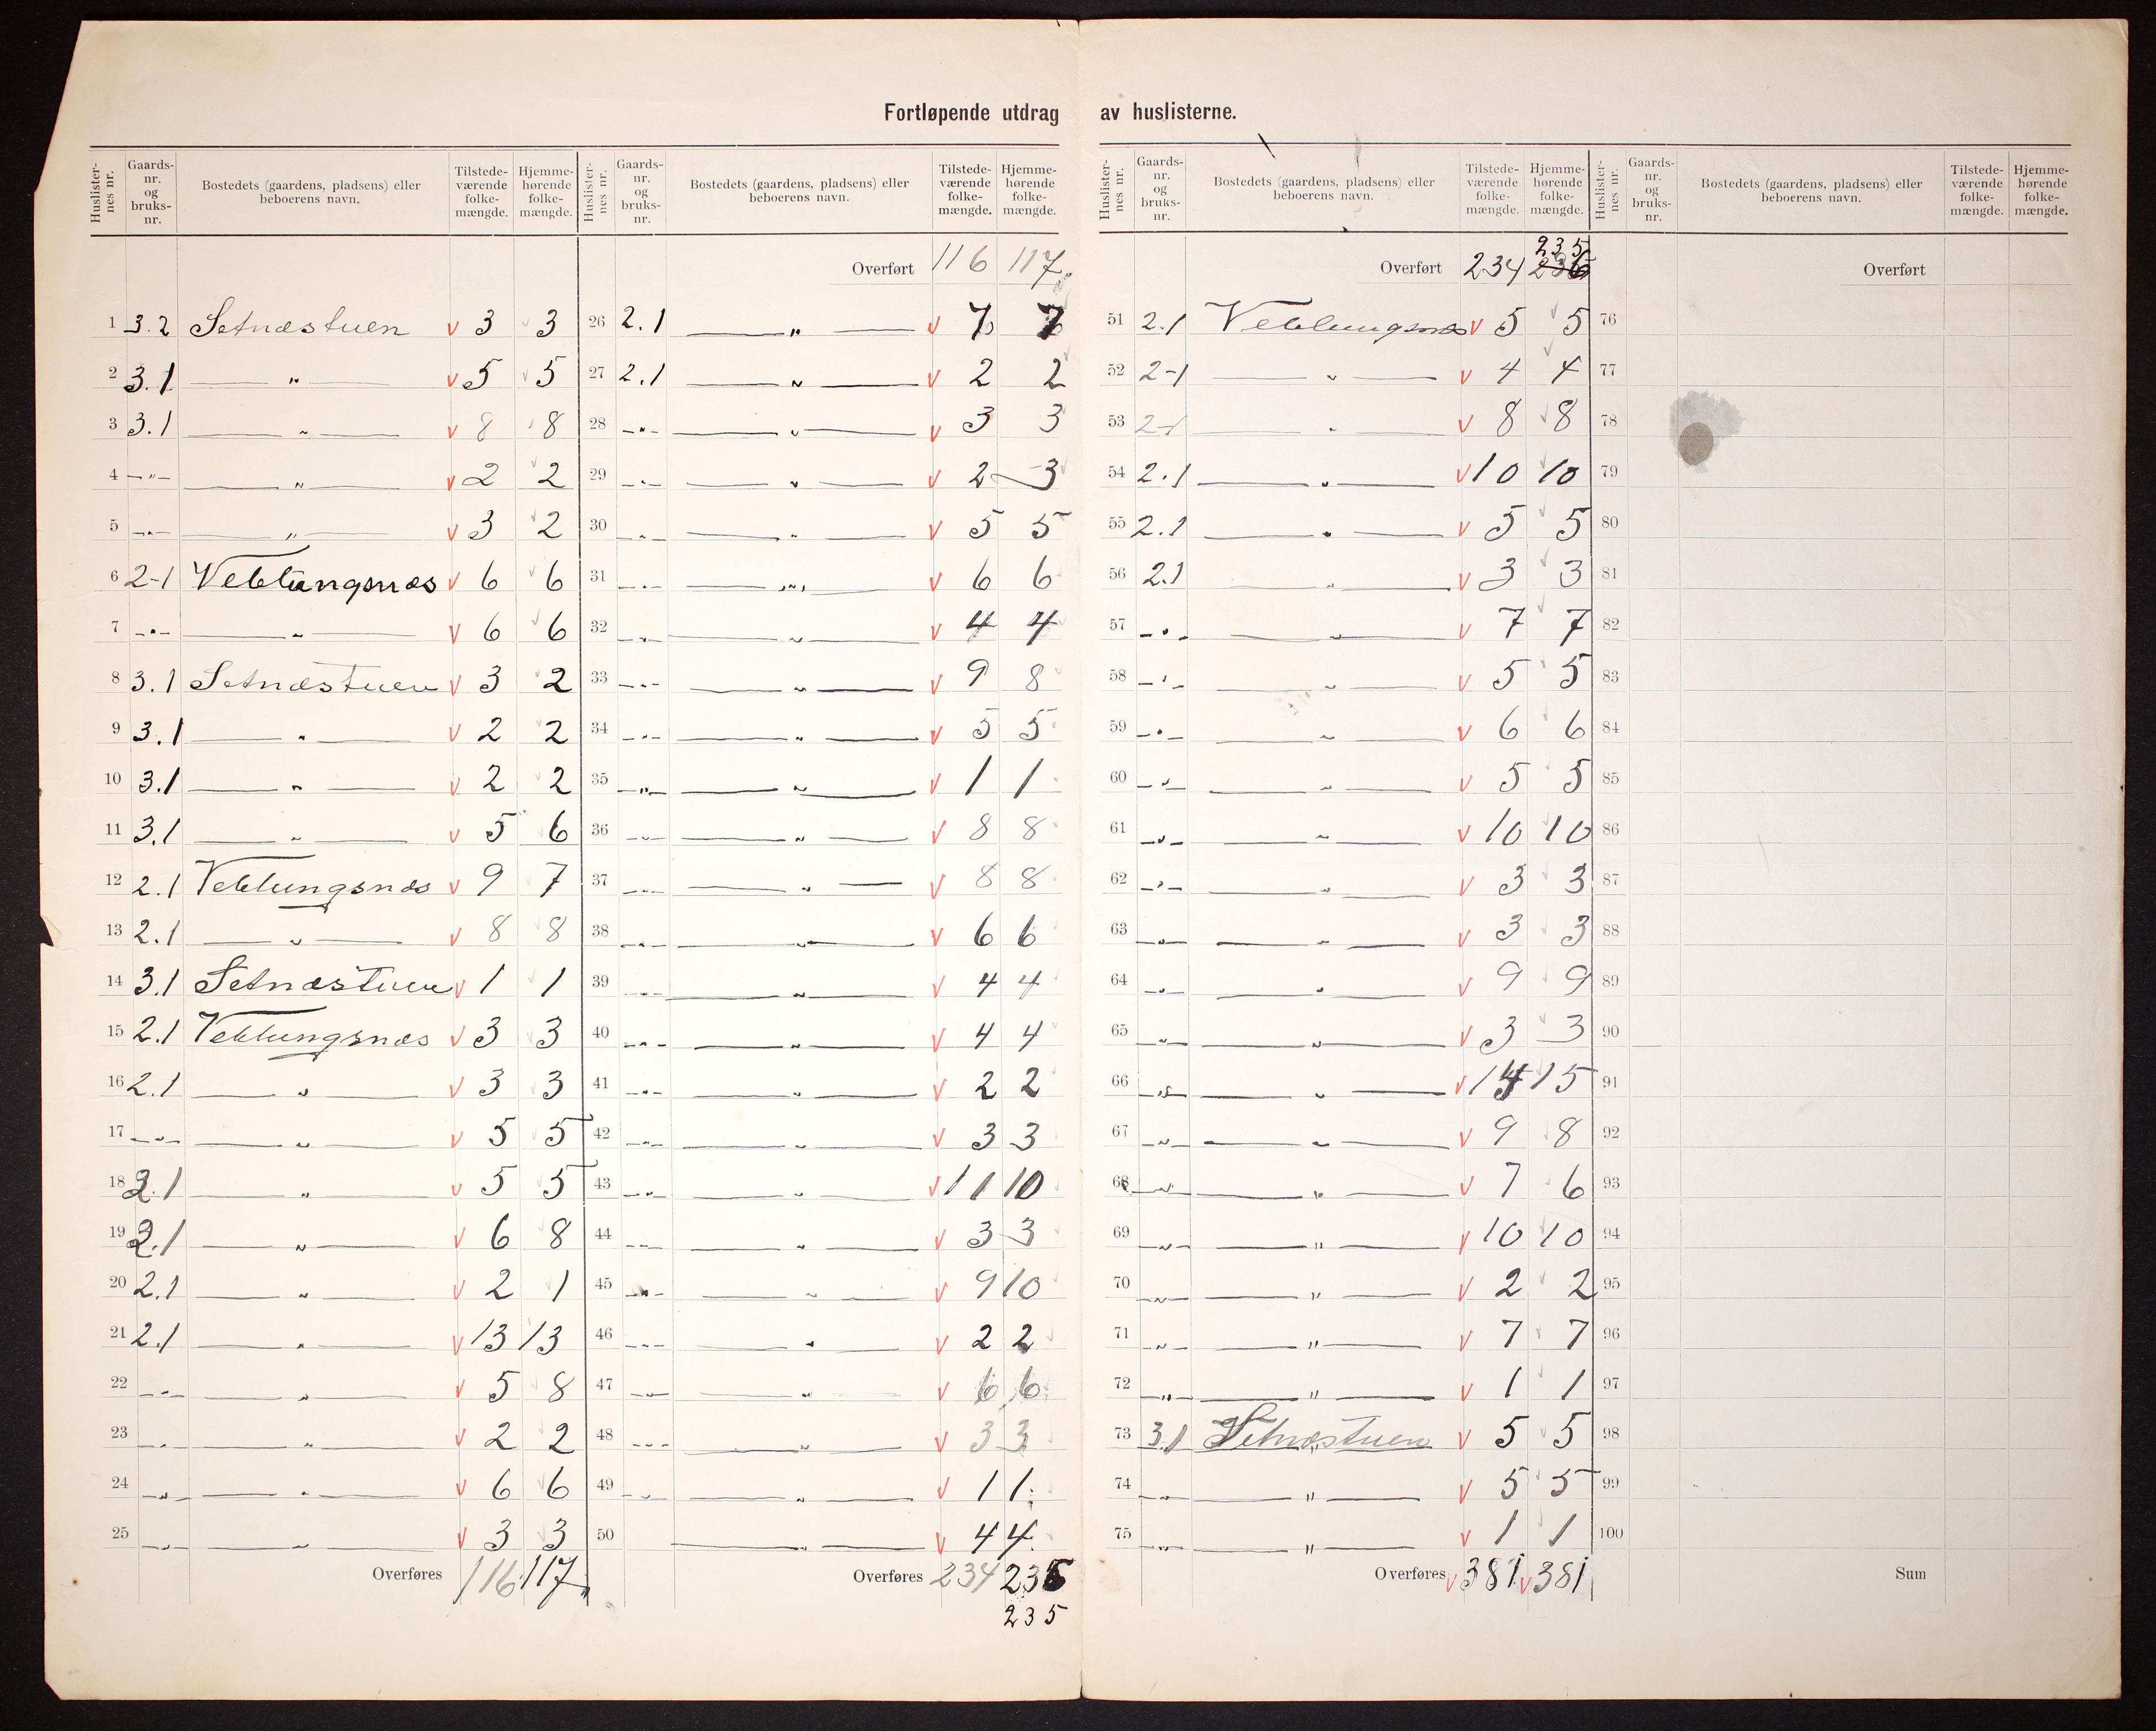 Fortløpende utdrag av huslisterne.
Huslisternes nr. Gaards-nr. og bruks-nr. Bostedets (gaardens, pladsens) eller beboerens navn. Tilstede-værende folke-mængde. Hjemme-hørende folke-mængde.
1 3.2 Setnæstuen v 3 3
2 3.1 — " — v 5 5
3 3.1 — " — v 8 8
4 — " — — " — v 2 2
5 — " — — " — v 3 2
6 2-1 Veblungsnæs v 6 6
7 — " — — " — v 6 6
8 3.1 Setnæstuen v 3 2
9 3.1 — " — v 2 2
10 3.1 — " — v 2 2
11 3.1 — " — v 5 6
12 2.1 Veblungsnæs v 9 7
13 2.1 — " — v 8 8
14 3.1 Setnæstuen v 1 1
15 2.1 Veblungsnæs v 3 3
16 2.1 — " — v 3 3
17 — " — — " — v 5 5
18 2.1 — " — v 5 5
19 2.1 — " — v 6 8
20 2.1 — " — v 2 1
21 2.1 — " — v 13 13
22 — " — — " — v 5 8
23 — " — — " — v 2 2
24 — " — — " — v 6 6
25 — " — — " — v 3 3
Overføres 116 117
Huslisternes nr. Gaards-nr. og bruks-nr. Bostedets (gaardens, pladsens) eller beboerens navn. Tilstede-værende folke-mængde. Hjemme-hørende folke-mængde.
Overført 116 117
26 2.1 — " — v 7 7
27 2.1 — " — v 2 2
28 — " — — " — v 3 3
29 — " — — " — v 2 3
30 — " — — " — v 5 5
31 — " — — " — v 6 6
32 — " — — " — v 4 4
33 — " — — " — v 9 8
34 — " — — " — v 5 5
35 — " — — " — v 1 1
36 — " — — " — v 8 8
37 — " — — " — v 8 8
38 — " — — " — v 6 6
39 — " — — " — v 4 4
40 — " — — " — v 4 4
41 — " — — " — v 2 2
42 — " — — " — v 3 3
43 — " — — " — v 11 10
44 — " — — " — v 3 3
45 — " — — " — v 9 10
46 — " — — " — v 2 2
47 — " — — " — v 6 6
48 — " — — " — v 3 3
49 — " — — " — v 1 1
50 — " — v 4 4
Overføres 234 236
235
Huslisternes nr. Gaards-nr. og bruks-nr. Bostedets (gaardens, pladsens) eller beboerens navn. Tilstede-værende folke-mængde. Hjemme-hørende folke-mængde.
235
Overført 234 236
51 2.1 Veblungsnæs v 5 5
52 2-1 — " — v 4 4
53 2-1 — " — v 8 8
54 2.1 — " — v 10 10
55 2.1 — " — v 5 5
56 2.1 — " — v 3 3
57 — " — — " — v 7 7
58 — " — — " — v 5 5
59 — " — — " — v 6 6
60 — " — — " — v 5 5
61 — " — — " — v 10 10
62 — " — — " — v 3 3
63 — " — — " — v 3 3
64 — " — — " — v 9 9
65 — " — — " — v 3 3
66 — " — — " — v 14 15
67 — " — — " — v 9 8
68 — " — — " — v 7 6
69 — " — — " — v 10 10
70 — " — — " — v 2 2
71 — " — — " — v 7 7
72 — " — — " — v 1 1
73 3.1 Setnæstuen v 5 5
74 — " — — " — v 5 5
75 — " — — " — v 1 1
Overføres v 381 v 381
Huslisternes nr. Gaards-nr. og bruks-nr. Bostedets (gaardens, pladsens) eller beboerens navn. Tilstede-værende folke-mængde. Hjemme-hørende folke-mængde.
Overført
76
77
78
79
80
81
82
83
84
85
86
87
88
89
90
91
92
93
94
95
96
97
98
99
100
Sum